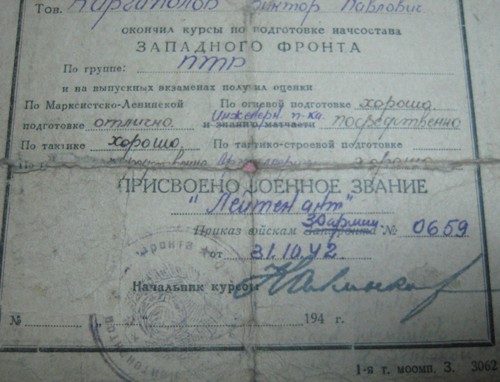 Тов. Каргаполов Виктор Павлович
окончил курсы по подготовке начсостава
ЗАПАДНОГО ФРОНТА
По группе: ПТР
и на выпускных экзаменах получил оценки
По Марксистско-Ленинской подготовке отлично
По огневой подготовке хорошо
Инженерн. п-ка
и знанию матчасти посредственно
По тактике хорошо
По тактико-строевой подготовке
хорошо
ПРИСВОЕНО ВОЕННОЕ ЗВАНИЕ
"Лейтенант"
30 армии
Приказ войскам Запфронта № 0659
от 31.10.42.
Начальник курсов
№ 194 г.
1-я т. моомп. З. 3062